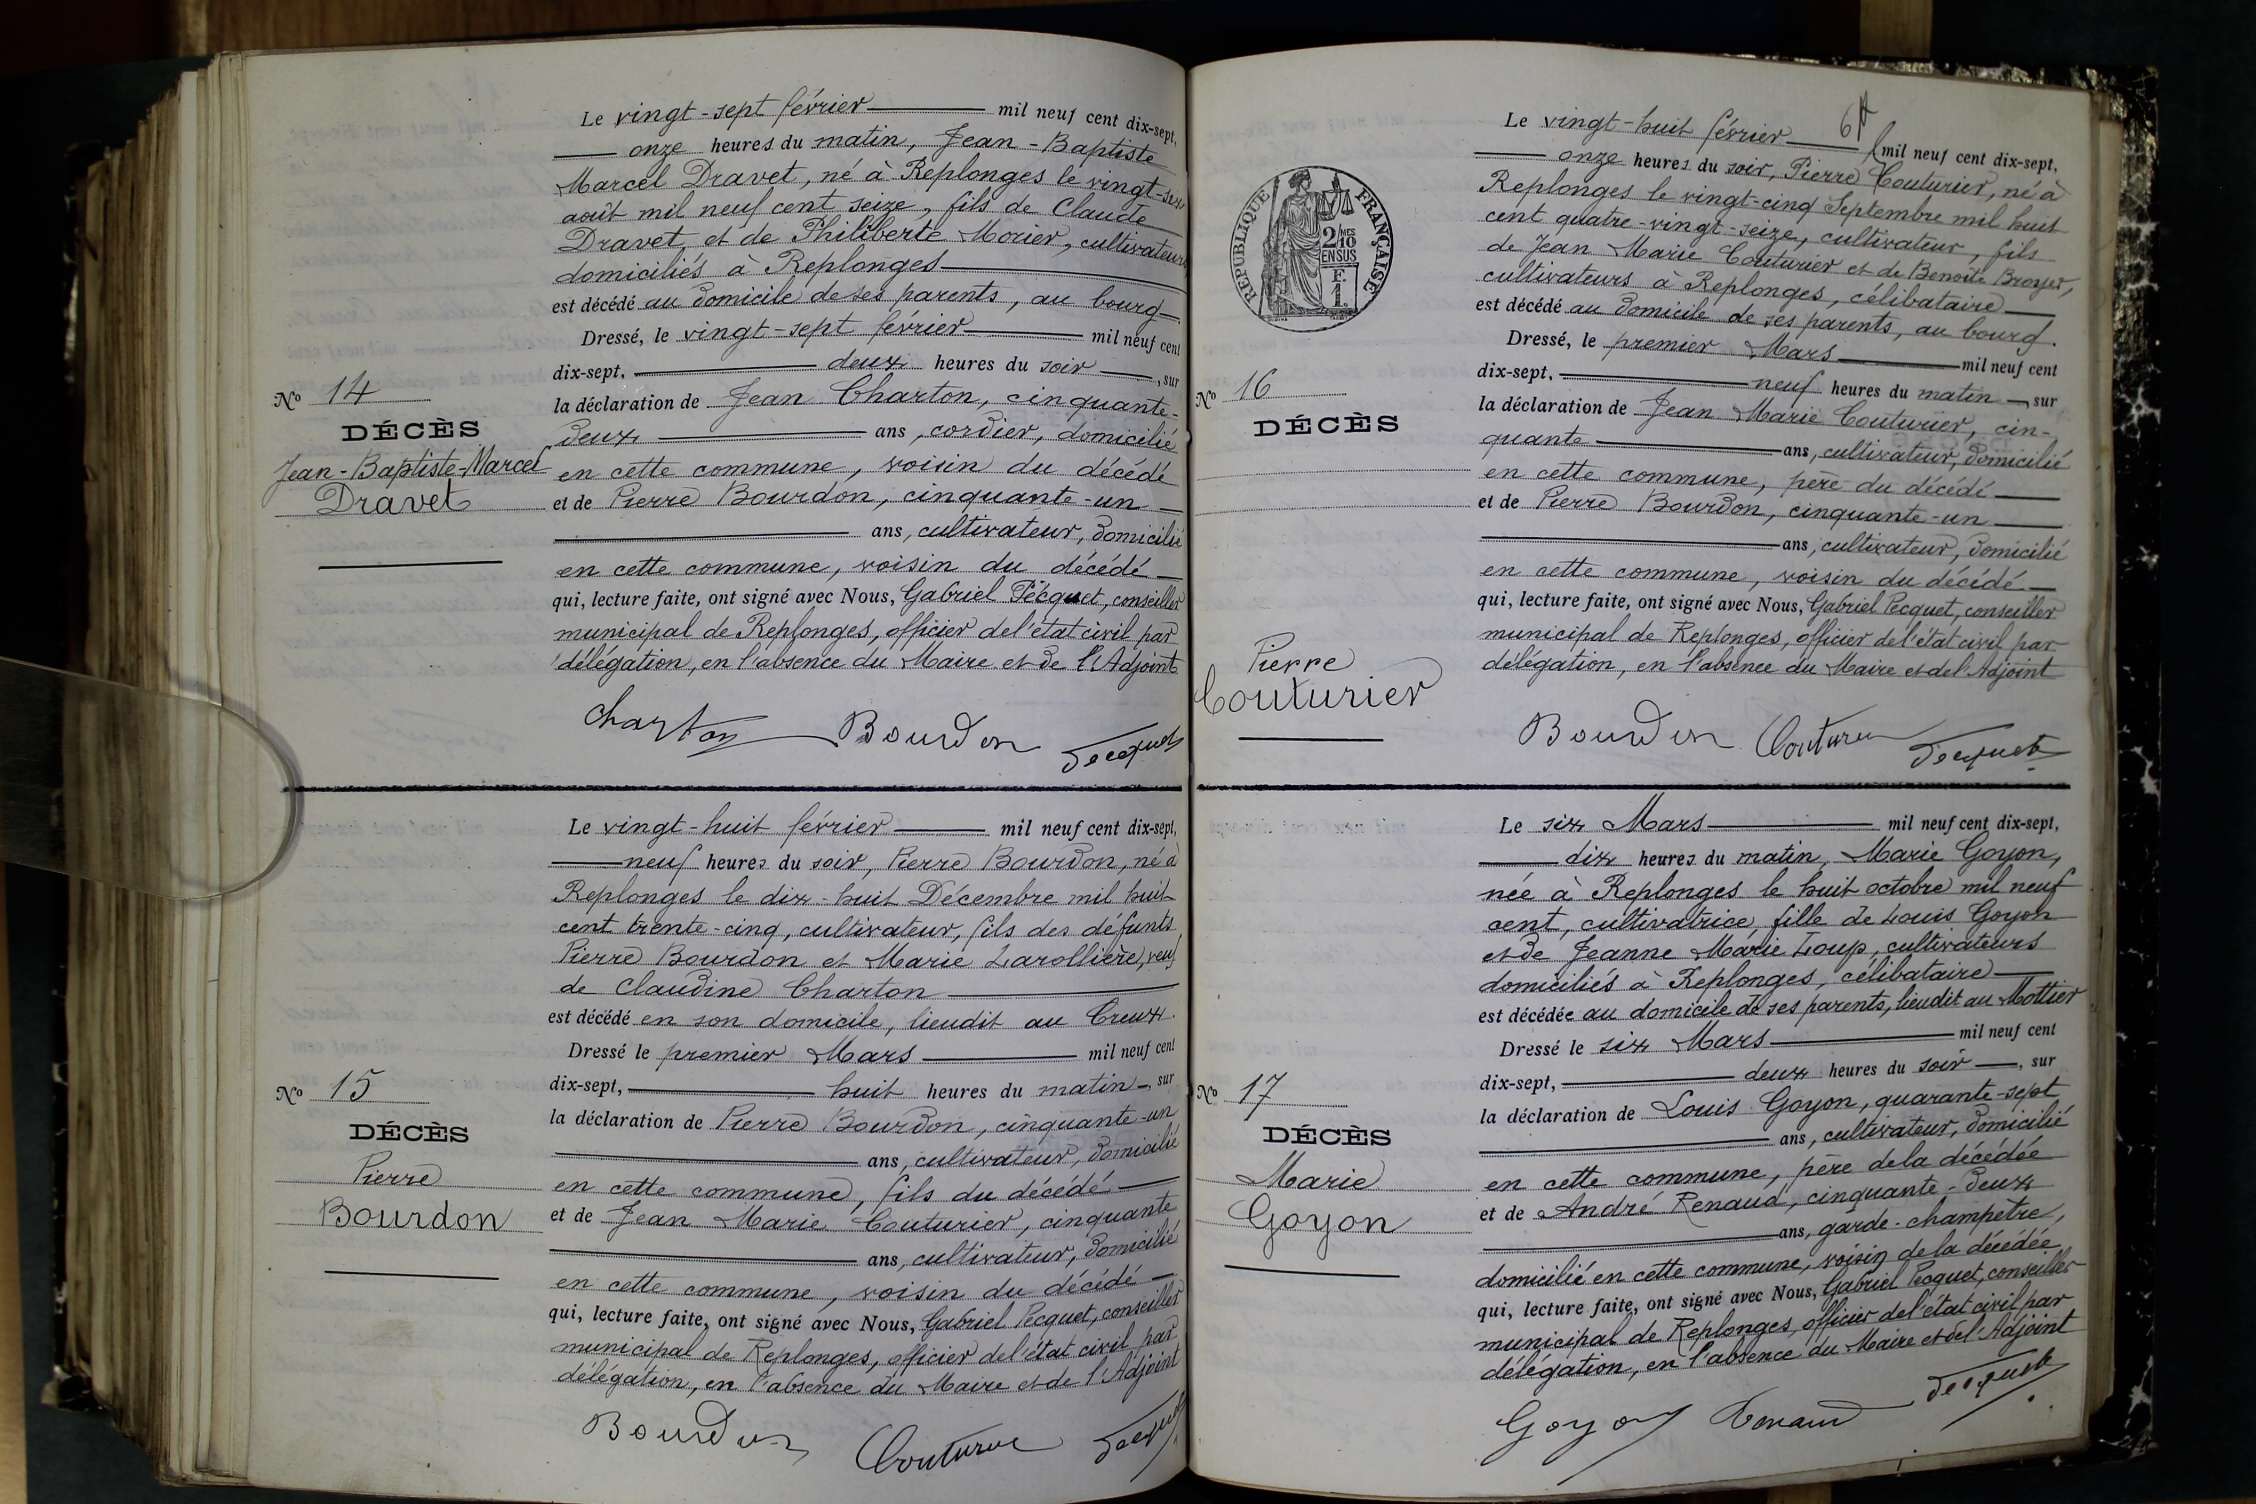 Le vingt-sept février mil neuf cent dix-sept,
onze heures du matin, Jean-Baptiste
Marcel Dravet, né à Replonges le vingt-six
août mil neuf cent seize, fils de Claude
Dravet, et de Philiberte Morier, cultivateurs
domiciliés à Replonges
est décédé au domicile de ses parents, au bourg.
Dressé, le vingt-sept février mil neuf cent
dix-sept, deux heures du soir, sur
la déclaration de Jean Charton, cinquante-
deux ans, cordier, domicilié
en cette commune, voisin du décédé
et de Pierre Bourdon, cinquante-un
ans, cultivateur, domicilié
en cette commune, voisin du décédé
qui, lecture faite, ont signé avec Nous, Gabriel Pecquet, conseiller
municipal de Replonges, officier de l'état civil par
délégation, en l'absence du Maire et de l'Adjoint
Nº 14
DÉCÈS
Jean-Baptiste-Marcel
Dravet
Charton Bourdon Pecquet
Le vingt-huit février mil neuf cent dix-sept,
neuf heures du soir, Pierre Bourdon, né à
Replonges le dix-huit Décembre mil huit
cent trente-cinq, cultivateur, fils des défunts
Pierre Bourdon et Marie Larollière, veuf
de Claudine Charton
est décédé en son domicile, lieudit au Creux.
Dressé le premier Mars mil neuf cent
dix-sept, huit heures du matin, sur
la déclaration de Pierre Bourdon, cinquante-un
ans, cultivateur, domicilié
en cette commune, fils du décédé
et de Jean Marie Couturier, cinquante
ans, cultivateur, domicilié
en cette commune, voisin du décédé
qui, lecture faite, ont signé avec Nous, Gabriel Pecquet, conseiller
municipal de Replonges, officier de l'état civil par
délégation, en l'absence du Maire et de l'Adjoint
Nº 15
DÉCÈS
Pierre
Bourdon
Bourdon Couturier Pecquet
REPUBLIQUE FRANÇAISE
2 MES
10
EN SUS
F
1.
Le vingt-huit février mil neuf cent dix-sept,
onze heures du soir, Pierre Couturier, né à
Replonges le vingt-cinq Septembre mil huit
cent quatre-vingt-seize, cultivateur, fils
de Jean Marie Couturier et de Benoite Broyer,
cultivateurs à Replonges, célibataire
est décédé au domicile de ses parents, au bourg.
Dressé, le premier Mars mil neuf cent
dix-sept, neuf heures du matin, sur
la déclaration de Jean Marie Couturier, cin-
quante ans, cultivateur, domicilié
en cette commune, père du décédé
et de Pierre Bourdon, cinquante-un
ans, cultivateur, domicilié
en cette commune, voisin du décédé
qui, lecture faite, ont signé avec Nous, Gabriel Pecquet, conseiller
municipal de Replonges, officier de l'état civil par
délégation, en l'absence du Maire et de l'Adjoint
Nº 16
DÉCÈS
Pierre
Couturier
Bourdon Couturier Pecquet
Le six Mars mil neuf cent dix-sept,
dix heures du matin, Marie Goyon,
née à Replonges le huit octobre mil neuf
cent, cultivatrice, fille de Louis Goyon
et de Jeanne Marie Loup, cultivateurs
domiciliés à Replonges, célibataire
est décédée au domicile de ses parents, lieudit au Mottier
Dressé le six Mars mil neuf cent
dix-sept, deux heures du soir, sur
la déclaration de Louis Goyon, quarante-sept
ans, cultivateur, domicilié
en cette commune, père de la décédée
et de André Renaud, cinquante-deux
ans, garde-champêtre,
domicilié en cette commune, voisin de la décédée
qui, lecture faite, ont signé avec Nous, Gabriel Pecquet, conseiller
municipal de Replonges, officier de l'état civil par
délégation, en l'absence du Maire et de l'Adjoint
Nº 17
DÉCÈS
Marie
Goyon
Goyon Renaud Pecquet